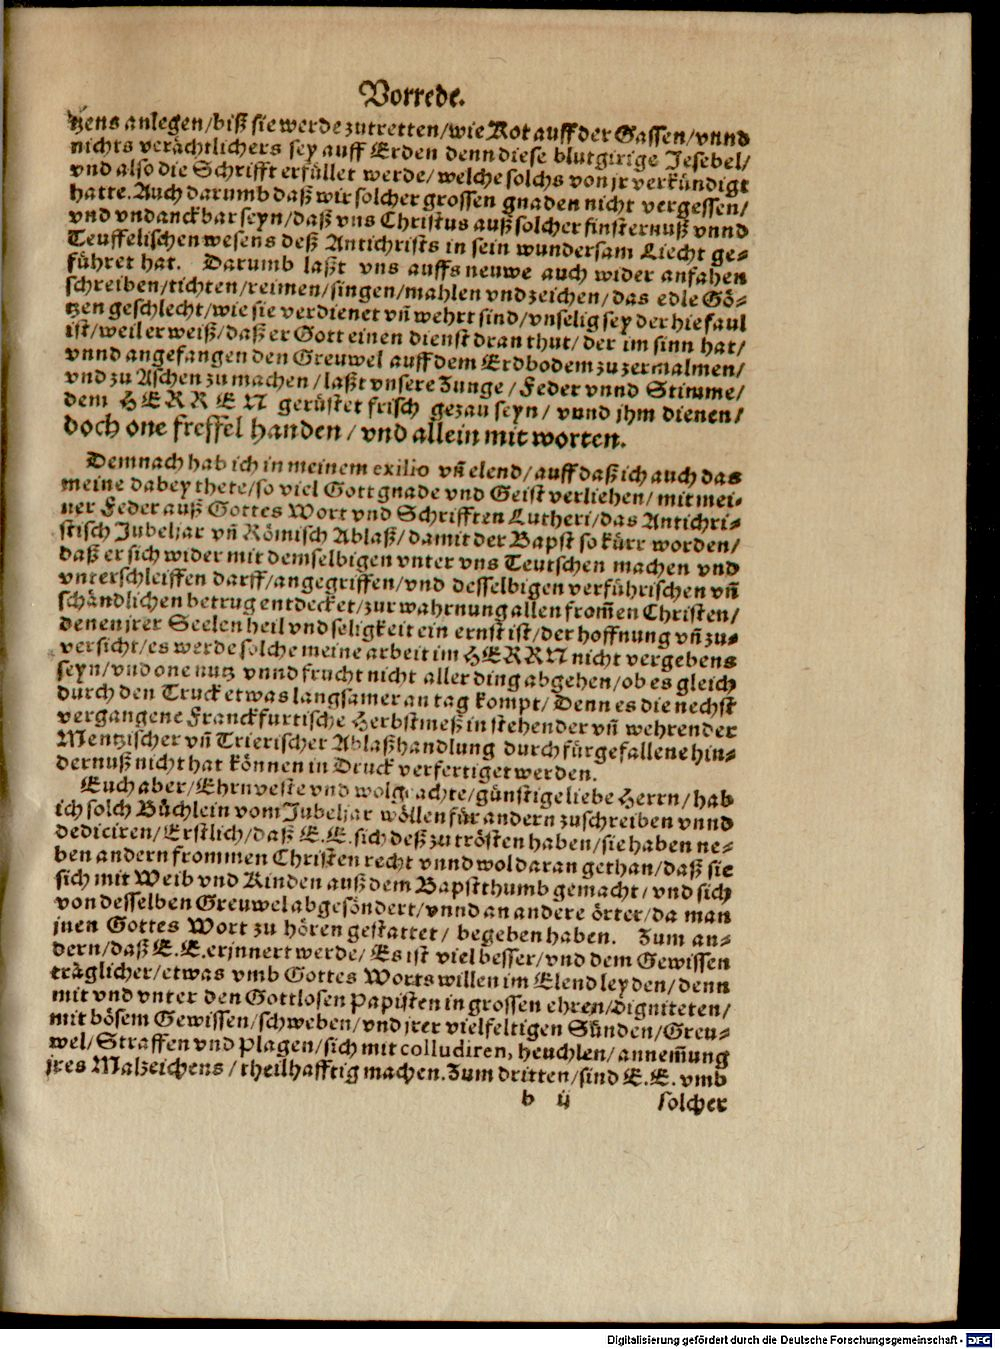 Vorrede.
tzens anlegen/biß sie werde zutretten/wie Kot auff der Gassen/vnnd
nichts verächtlichers sey auff Erden denn diese blutgirige Jesebel/
vnd also die Schrifft erfüllet werde/welche solchs von jr verkündigt
hatte. Auch darumb daß wir solcher grossen gnaden nicht vergessen/
vnd vndanckbar seyn/daß vns Christus auß solcher finsternuß vnnd
Teuffelischen wesens deß Antichrists in sein wundersam Liecht ge⸗
führet hat. Darumb laßt vns auffs neuwe auch wider anfahen
schreiben/tichten/reimen/singen/mahlen vnd zeichen/das edle Gö⸗
tzen geschlecht/wie sie verdienet vñ wehrt sind/vnselig sey der hie faul
ist/weil er weiß/daß er Gott einen dienst dran thut/der im sinn hat/
vnnd angefangen den Greuwel auff dem Erdbodem zu zermalmen/
vnd zu Aschen zu machen/laßt vnsere Zunge/Feder vnnd Stimme/
dem HERREN gerüstet frisch gezau seyn/vnnd jhm dienen/
doch one freffel handen/vnd allein mit worten.
Demnach hab ich in meinem exilio vñ elend/auff daß ich auch das
meine dabey thete/so viel Gott gnade vnd Geist verliehen/mit mei⸗
ner Feder auß Gottes Wort vnd Schrifften Lutheri/das Antichri⸗
stisch Jubeljar vñ Römisch Ablaß/damit der Bapst so kürr worden/
daß er sich wider mit demselbigen vnter vns Teutschen machen vnd
vnterschleiffen darff/angegriffen/vnd desselbigen verführischen vñ
schändlichen betrug entdecket/zur wahrnung allen from̃en Christen/
denen jrer Seelen heil vnd seligkeit ein ernst ist/der hoffnung vñ zu⸗
versicht/es werde solche meine arbeit im HERRN nicht vergebens
seyn/vnd one nutz vnnd frucht nicht aller ding abgehen/ob es gleich
durch den Truck etwas langsamer an tag kompt/Denn es die nechst
vergangene Franckfurtische Herbstmeß in stehender vñ wehrender
Mentzischer vñ Trierischer Ablaßhandlung durch fürgefallene hin⸗
dernuß nicht hat können in Druck verfertiget werden.
Euch aber/Ehrnveste vnd wolgeachte/günstige liebe Herrn/hab
ich solch Büchlein vom Jubeljar wöllen für andern zuschreiben vnnd
dediciren/Erstlich/daß E. E. sich deß zu trösten haben/sie haben ne⸗
ben andern frommen Christen recht vnnd wol daran gethan/daß sie
sich mit Weib vnd Kinden auß dem Bapstthumb gemacht/vnd sich
von desselben Greuwel abgesöndert/vnnd an andere örter/da man
jnen Gottes Wort zu hören gestattet/begeben haben. Zum an⸗
dern/daß E. E. erjnnert werde/Es ist viel besser/vnd dem Gewissen
träglicher/etwas vmb Gottes Worts willen im Elend leyden/denn
mit vnd vnter den Gottlosen Papisten in grossen ehren/digniteten/
mit bösem Gewissen/schweben/vnd jrer vielfeltigen Sünden/Greu⸗
wel/Straffen vnd Plagen/sich mit colludiren, heuchlen/annem̃ung
jres Malzeichens/theilhafftig machen. Zum dritten/sind E. E. vmb
b ij solcher
Digitalisierung gefördert durch die Deutsche Forschungsgemeinschaft - DFG